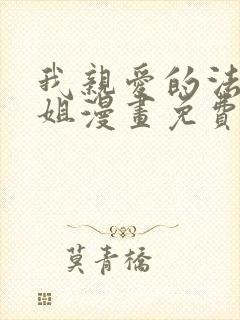 我親愛的法
姐漫畫免費
莫青橋